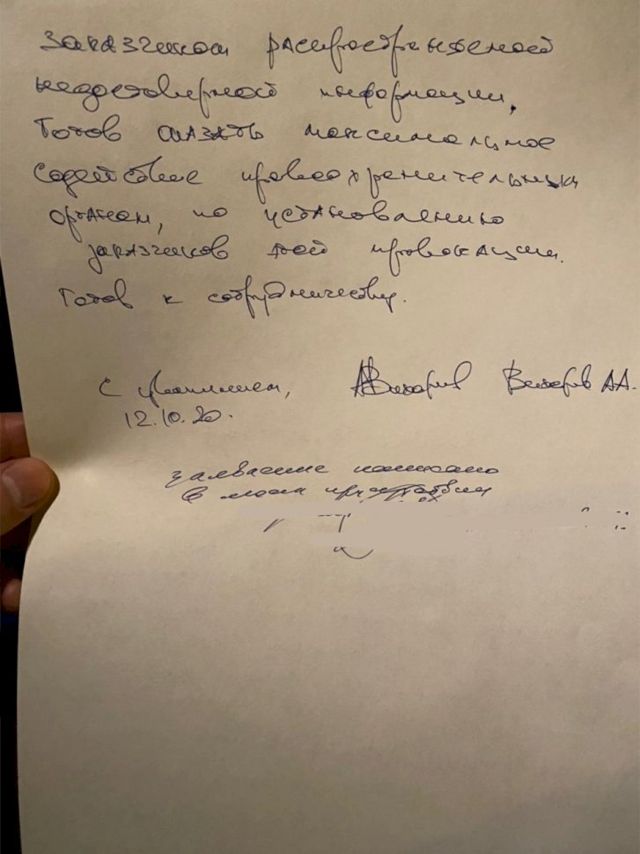 Заказчиком распространяемой
недостоверной информации,
Готов оказать максимальное
содействие правоохранительным
органам, по установлению
заказчиков этой провокации.
Готов к сотрудничеству.
С уважением, Вихарев Вихарев А.А.
12.10.20.
заявление написано
в моем присутствии